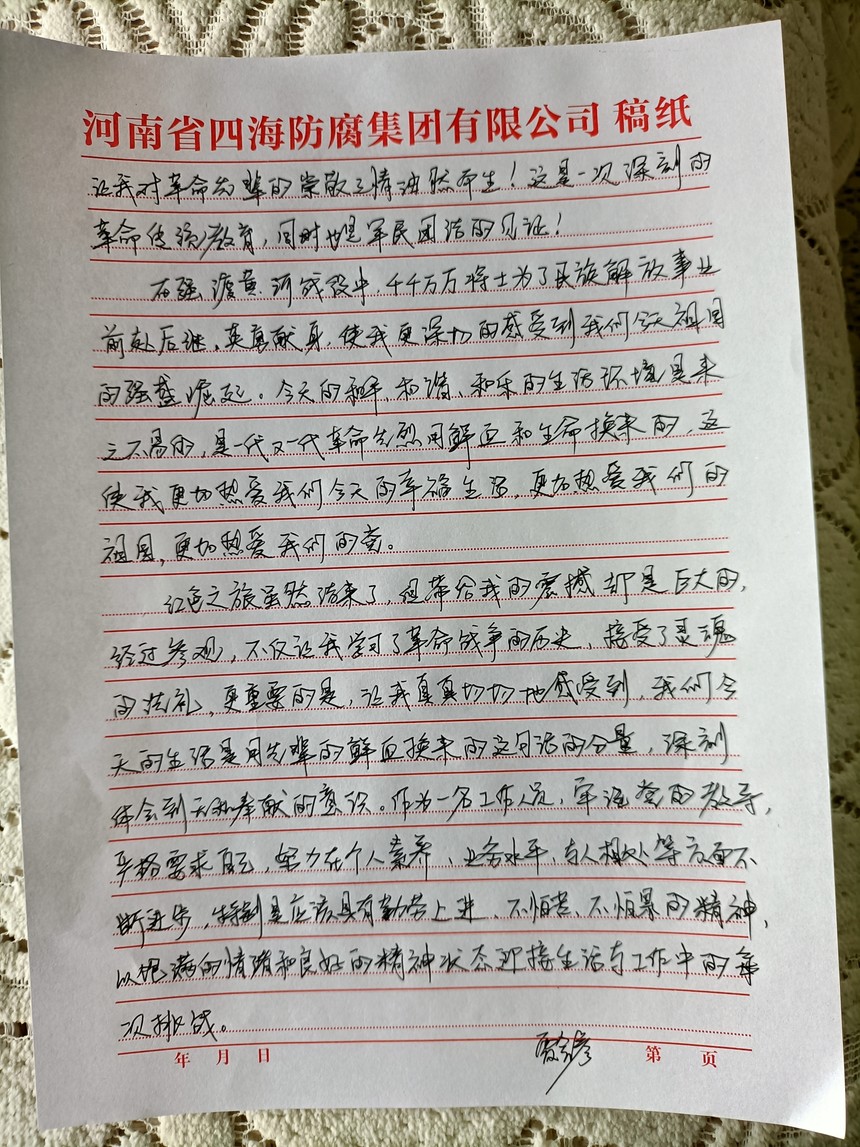 河南省四海防腐集团有限公司 稿纸
让我对革命先辈的崇敬之情油然而生！这是一次深刻的
革命传统教育，同时也是军民团结的见证！
在强渡黄河战役中，千千万万将士为了民族解放事业
前赴后继，英勇献身，使我更深切的感受到我们今天祖国
的强盛崛起。今天的和平、和谐、和乐的生活环境是来
之不易的，是一代又一代革命先烈用鲜血和生命换来的，这
使我更加热爱我们今天的幸福生活，更加热爱我们的
祖国，更加热爱我们的党。
红色之旅虽然结束了，但带给我的震撼却是巨大的，
经过参观，不仅让我学习了革命战争的历史，接受了灵魂
的洗礼，更重要的是，让我真真切切地感受到，我们今
天的生活是用先辈的鲜血换来的这句话的分量，深刻
体会到无私奉献的意识。作为一名工作人员，牢记党的教导，
严格要求自己，努力在个人素养、业务水平、与人相处等方面不
断进步，特别是应该具有勤劳上进、不怕苦、不怕累的精神，
以饱满的情绪和良好的精神状态迎接生活与工作中的每
次挑战。
年 月 日 第 页